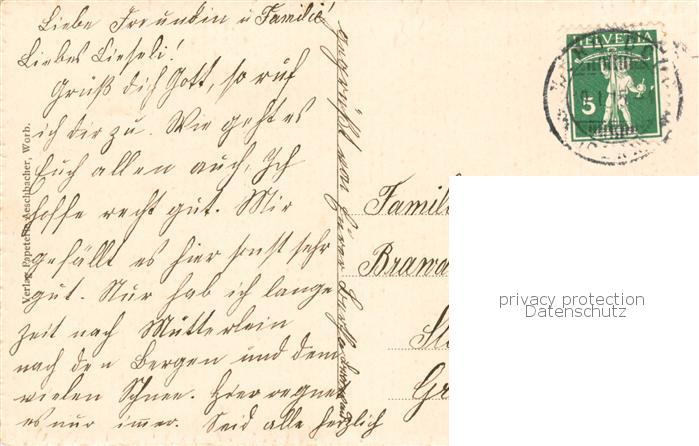 Liebe Freundin u Familie!
Liebes Lieseli!
Grüß dich Gott, so ruf
ich dir zu. Wie geht es
Euch allen auch, Ich
hoffe recht gut. Mir
gefällt es hier sonst sehr
gut. Nur hab ich lange
zeit nach Mütterlein
nach den Bergen und dem
vielen Schnee. Hier regnet
es nur immer. Seid alle herzlich
von Eurer
Verlag Papeterie Aeschbacher, Worb.
HELVETIA
5
Famil
Brawa
St
Gr
privacy protection
Datenschutz